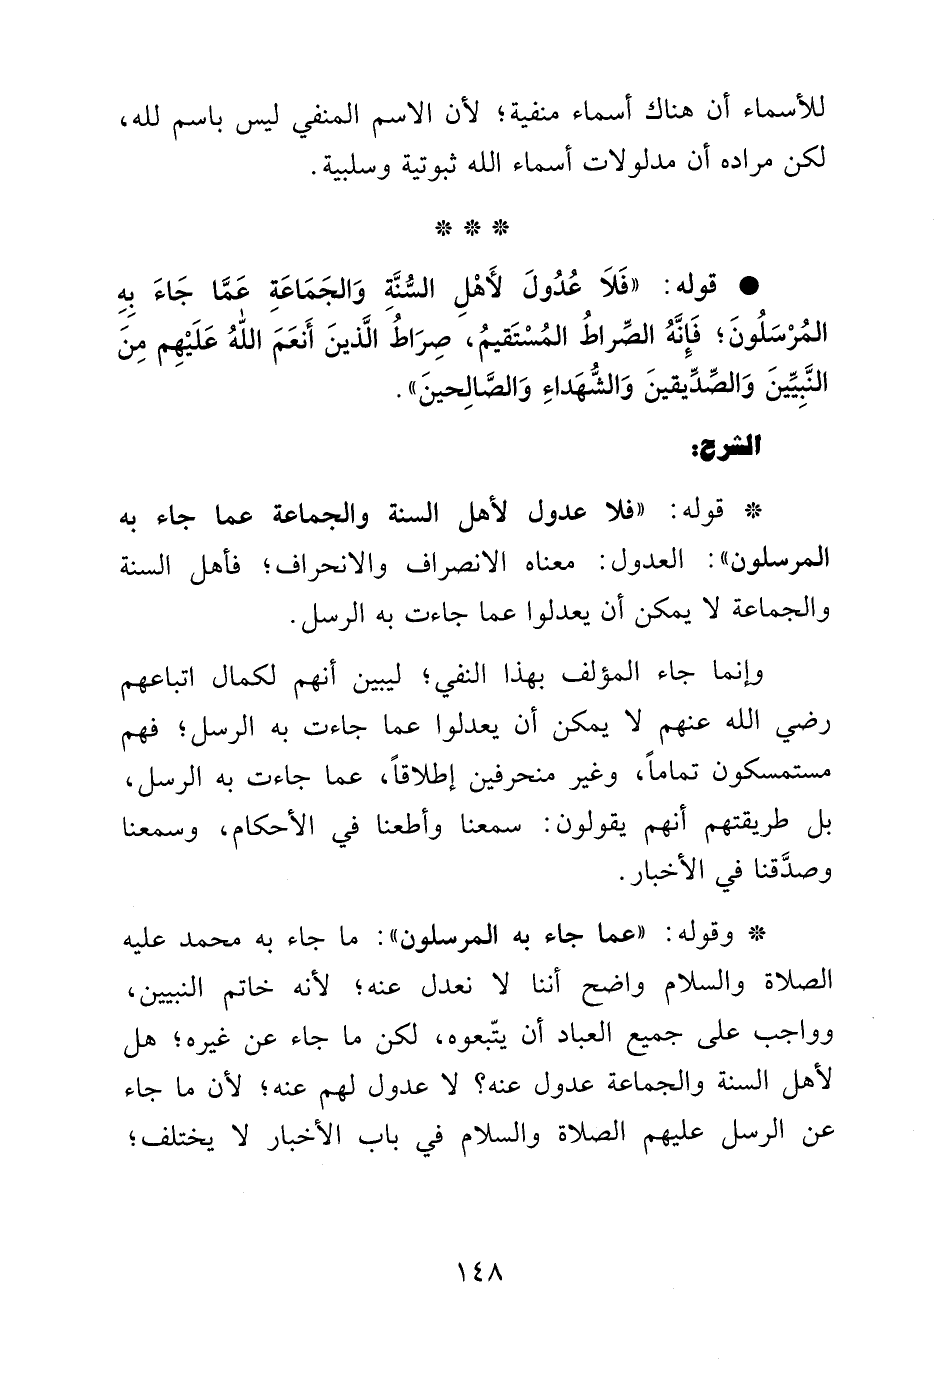 للأسماء أن هناك أسماء منفية؛ لأن الاسم المنفي ليس باسم لله،
لكن مراده أن مدلولات أسماء الله ثبوتية وسلبية.
* * *
● قوله: «فَلَا عُدُولَ لأَهْلِ السُّنَّةِ وَالجَمَاعَةِ عَمَّا جَاءَ بِهِ
المُرْسَلُونَ؛ فَإِنَّهُ الصِّراطُ المُسْتَقيمُ، صِرَاطُ الَّذينَ أَنعَمَ اللهُ عَلَيْهِم مِنَ
النَّبِيِّينَ وَالصِّدِّيقينَ وَالشُّهَداءِ وَالصَّالِحينَ».
الشرح:
* قوله: «فلا عدول لأهل السنة والجماعة عما جاء به
المرسلون»: العدول: معناه الانصراف والانحراف؛ فأهل السنة
والجماعة لا يمكن أن يعدلوا عما جاءت به الرسل.
وإنما جاء المؤلف بهذا النفي؛ ليبين أنهم لكمال اتباعهم
رضي الله عنهم لا يمكن أن يعدلوا عما جاءت به الرسل؛ فهم
مستمسكون تماماً، وغير منحرفين إطلاقاً، عما جاءت به الرسل،
بل طريقتهم أنهم يقولون: سمعنا وأطعنا في الأحكام، وسمعنا
وصدَّقنا في الأخبار.
* وقوله: «عما جاء به المرسلون»: ما جاء به محمد عليه
الصلاة والسلام واضح أننا لا نعدل عنه؛ لأنه خاتم النبيين،
وواجب على جميع العباد أن يتّبعوه، لكن ما جاء عن غيره؛ هل
لأهل السنة والجماعة عدول عنه؟ لا عدول لهم عنه؛ لأن ما جاء
عن الرسل عليهم الصلاة والسلام في باب الأخبار لا يختلف؛
١٤٨